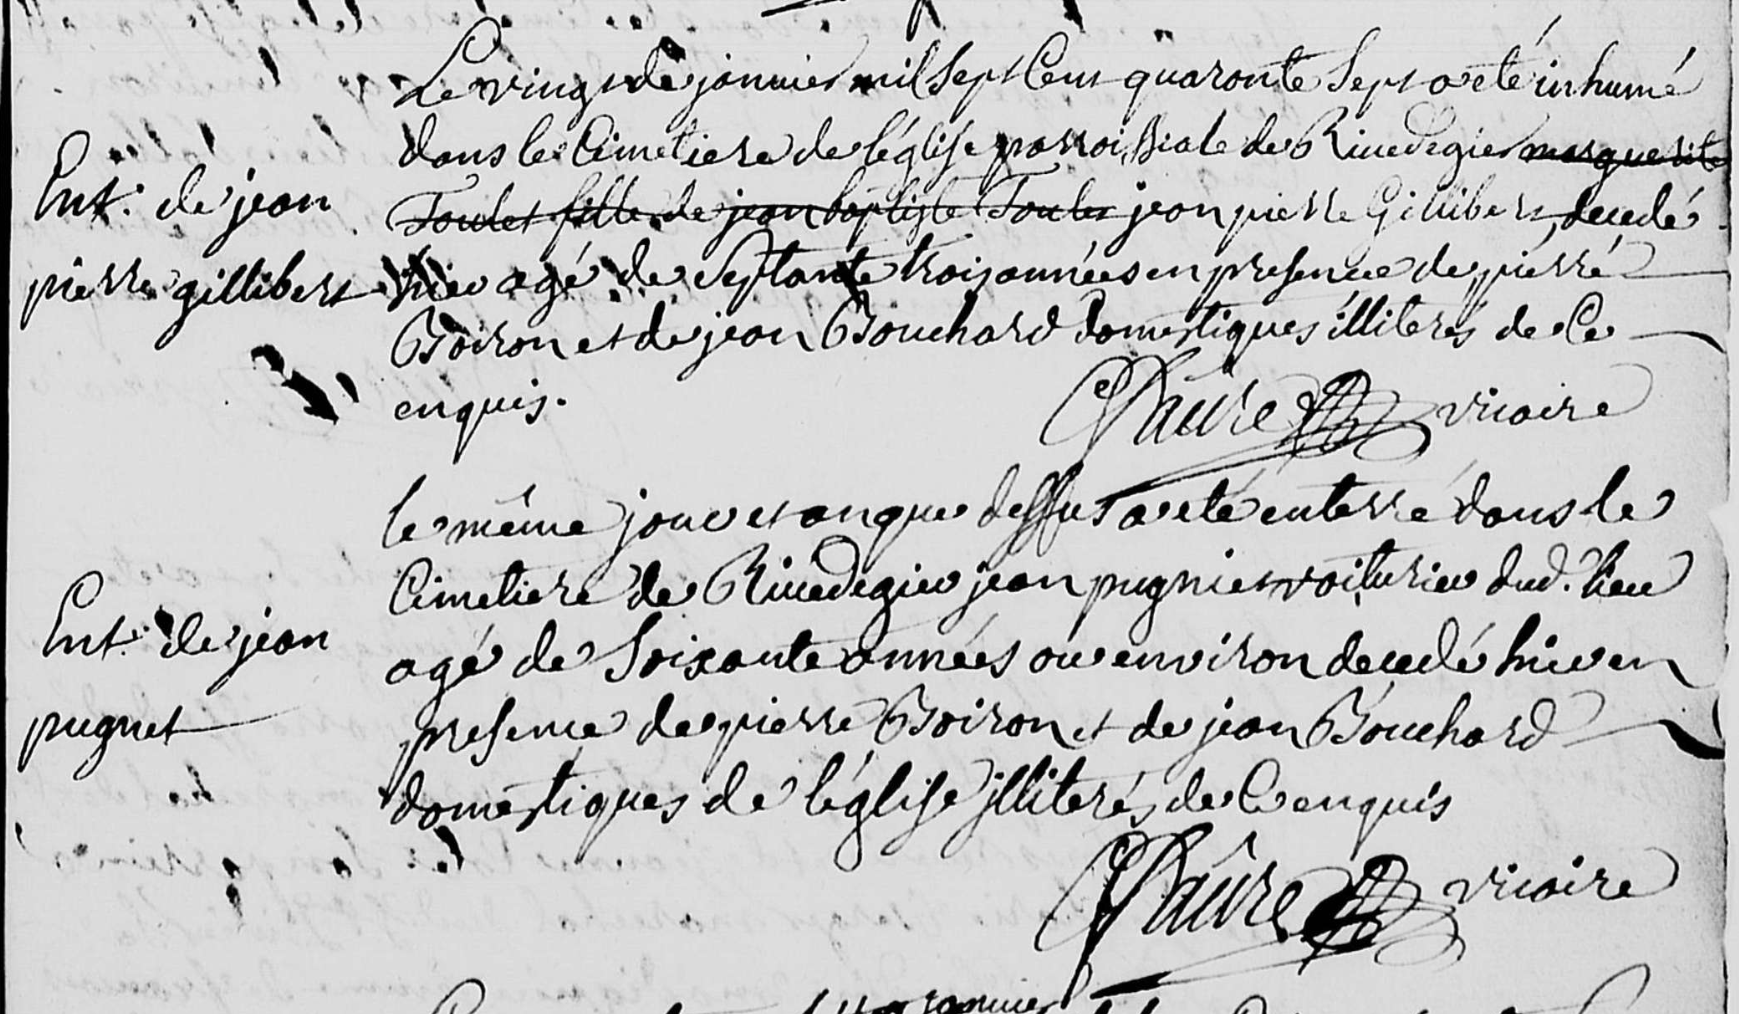 Le vingt de janvier mil sept Cent quarante sept a eté inhumé
dans le Cimetiere de l'églisse parroissiale de Rivedegier marguerite
Ent. de jean
Toulet fille de jean baptiste Toulet jean pierre Gillibert, decedé
pierre gillibert
hier agé de septante trois années en presence de pierré
Boiron et de jean Bouchard domestiques illiterés de Ce
enquis.
Faûre vicaire
le même jour et an que dessus a eté enterré dans le
Cimetiere de Rivedegier jean pugniet voiturier dud. lieu
Ent. de jean
agé de soixante années ou environ decedé hier en
pugnet
presence de pierre Boiron et de jean Bouchard
domestiques de l'églisse illiterés de Ce enquis
Faûre vicaire
janvier